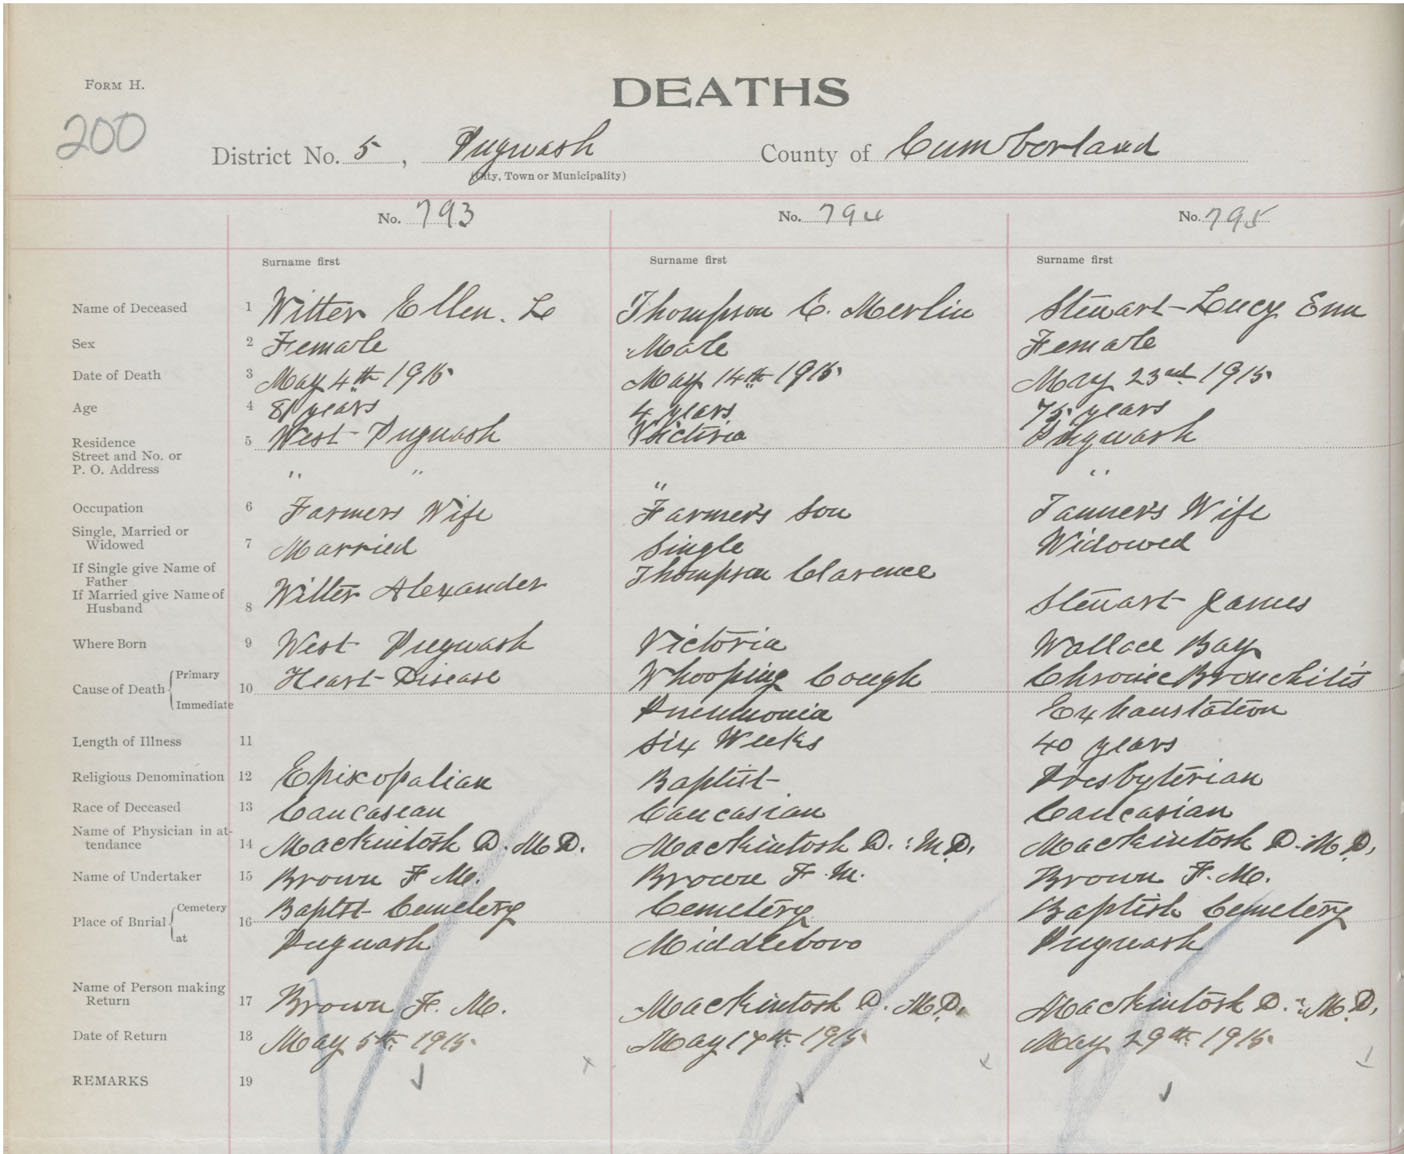 FORM H.
DEATHS
200
District No. 5, Pugwash County of Cumberland
(City, Town or Municipality)
No. 793 No. 794 No. 795
Surname first Surname first Surname first
Name of Deceased 1 Witter Ellen. L Thompson C. Merlin Stewart-Lucy Enn
Sex 2 Female Male Female
Date of Death 3 May 4th 1915. May 14th 1915. May 23rd 1915.
Age 4 81 years 4 years 75 years
Residence 5 West-Pugwash Victoria Pugwash
Street and No. or
P. O. Address " " " "
Occupation 6 Farmers Wife Farmer's Son Tanner's Wife
Single, Married or
Widowed 7 Married Single Widowed
If Single give Name of
Father Thompson Clarence
If Married give Name of
Husband 8 Witter Alexander Stewart-James
Where Born 9 West Pugwash Victoria Wallace Bay
Cause of Death Primary 10 Heart-Disease Whooping Cough Chronic Bronchitis
Immediate Pneumonia Exhaustation
Length of Illness 11 Six Weeks 40 years
Religious Denomination 12 Episcopalian Baptist- Presbyterian
Race of Deceased 13 Caucasean Caucasian Caucasian
Name of Physician in at-
tendance 14 Mackintosh D. M.D. Mackintosh D. : M.D. Mackintosh D. M.D.
Name of Undertaker 15 Brown F M. Brown F. M. Brown F. M.
Place of Burial Cemetery 16 Baptst-Cemetery Cemetery Baptish Cemetery
at Pugwash Middleboro Pugwash
Name of Person making
Return 17 Brown F. M. Mackintosh D. M.D. Mackintosh D. : M.D.
Date of Return 18 May 5th. 1915. May 17th 1915. May 29th. 1915.
REMARKS 19